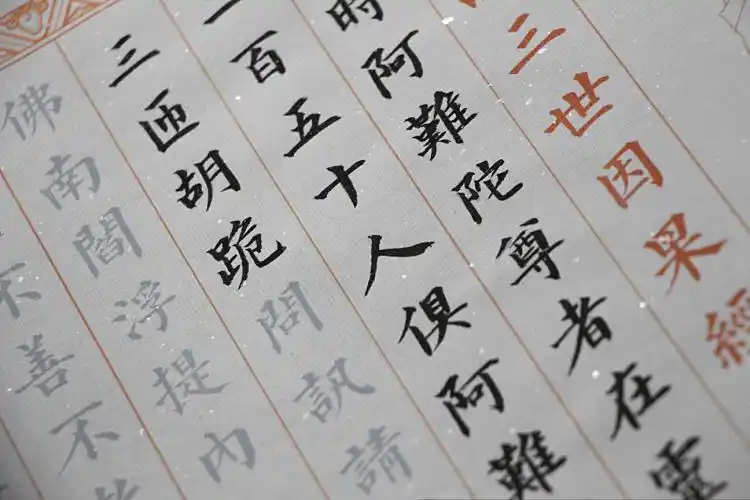 三世因果經
時阿難陀尊者在靈
一百五十人俱阿難
三匝胡跪問訊請
佛南閻浮提內
不善不